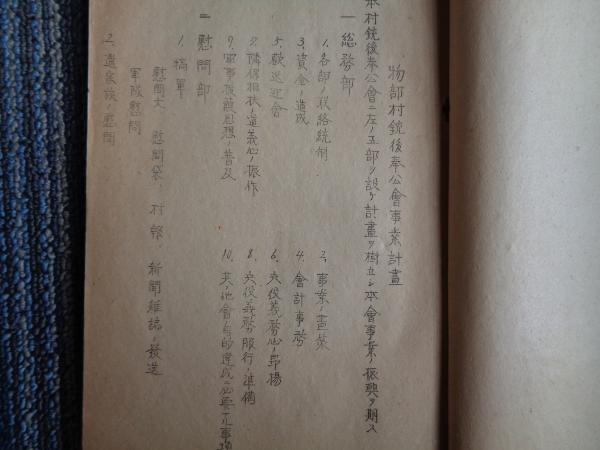 物部村銃後奉公會事業計畫
本村銃後奉公會ニ左ノ五部ヲ設ケ計畫ヲ樹立シ本會事業ノ振興ヲ期ス
一 総務部
1. 各部ノ聯絡統制
2. 事業ノ畫策
3. 資金ノ造成
4. 會計事務
5. 歓送迎會
6. 兵役義務心ノ昂揚
7. 隣保相扶ノ道義心ノ振作
8. 兵役義務服行ノ準備
9. 軍事後援思想ノ普及
10. 其ノ他會目的達成ニ必要ナル事項
二 慰問部
1. 犒軍
慰問文、慰問袋、村報、新聞雑誌ノ發送
軍隊慰問
2. 遺家族ノ慰問